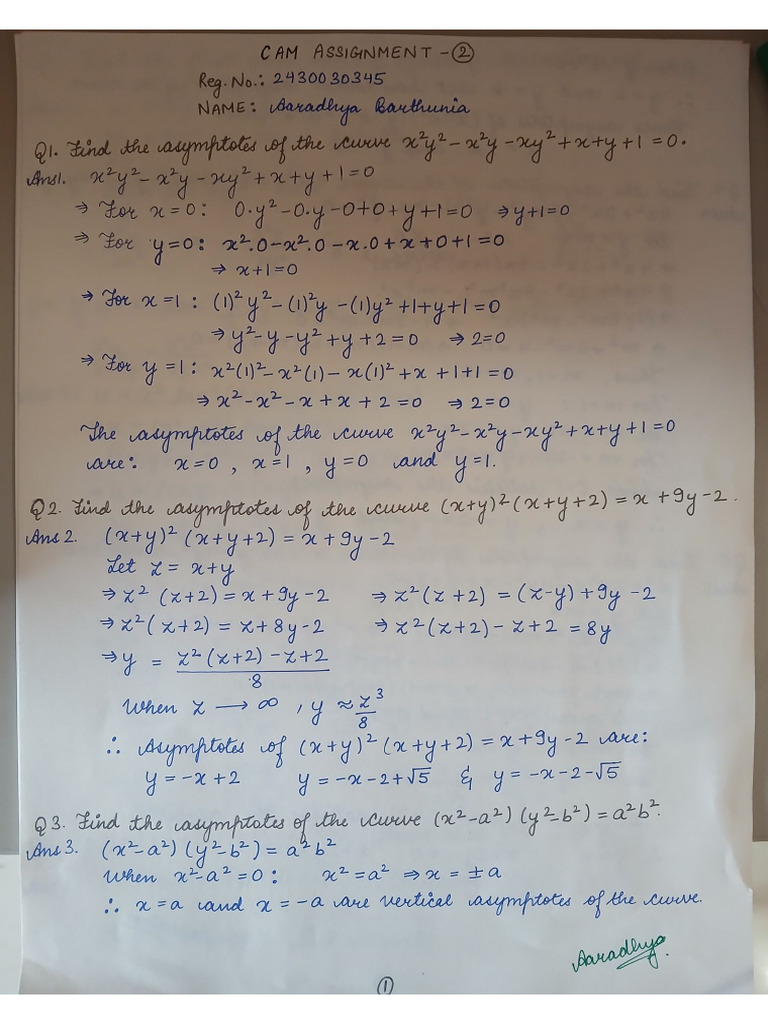 CAM ASSIGNMENT - ②
Reg. No.: 2430030345
NAME: Aaradhya Barthunia
Q1. Find the asymptotes of the curve x²y² - x²y - xy² + x + y + 1 = 0.
Ans1. x²y² - x²y - xy² + x + y + 1 = 0
⇒ For x=0: 0·y² - 0·y - 0 + 0 + y + 1 = 0 ⇒ y+1=0
⇒ For y=0: x².0 - x².0 - x.0 + x + 0 + 1 = 0
⇒ x+1=0
⇒ For x=1: (1)²y² - (1)²y - (1)y² + 1 + y + 1 = 0
⇒ y² - y - y² + y + 2 = 0 ⇒ 2=0
⇒ For y=1: x²(1)² - x²(1) - x(1)² + x + 1 + 1 = 0
⇒ x² - x² - x + x + 2 = 0 ⇒ 2=0
The asymptotes of the curve x²y² - x²y - xy² + x + y + 1 = 0
are: x=0, x=1, y=0 and y=1.
Q2. Find the asymptotes of the curve (x+y)²(x+y+2) = x + 9y - 2.
Ans 2. (x+y)² (x+y+2) = x + 9y - 2
Let z = x+y
⇒ z² (z+2) = x + 9y - 2 ⇒ z²(z+2) = (z-y) + 9y - 2
⇒ z²(z+2) = z + 8y - 2 ⇒ z²(z+2) - z + 2 = 8y
⇒ y = z²(z+2) - z + 2 / 8
When z → ∞, y ≈ z³/8
∴ Asymptotes of (x+y)²(x+y+2) = x + 9y - 2 are:
y = -x + 2 y = -x - 2 + √5 & y = -x - 2 - √5
Q3. Find the asymptotes of the curve (x²-a²)(y²-b²) = a²b².
Ans 3. (x²-a²)(y²-b²) = a²b²
When x²-a²=0: x² = a² ⇒ x = ±a
∴ x=a and x=-a are vertical asymptotes of the curve.
Aaradhya.
①